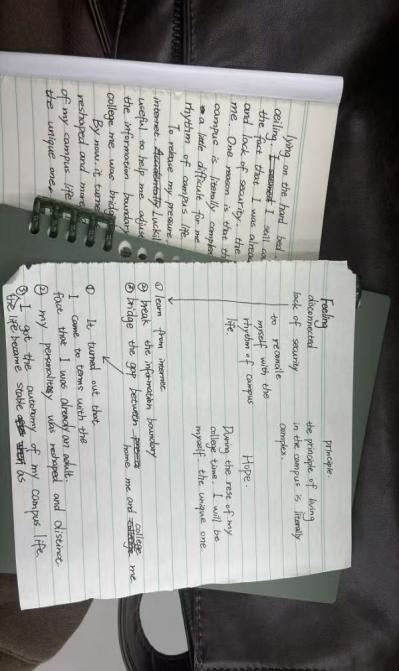 lying on the hard bed
ceiling. I
the fact that I was alrea
and lack of security. the
me. One reason is that th
campus is literally complex
a little difficult for me
rhythm of campus life.
To release my pressure
internet. Accidentally Luckil
useful to help me adjus
the information boundary
college me wave bridg
By now, it turne
reshaped and more
of my campus life
the unique one.
Feeling
disconnected
lack of security
principle
the principle of living
in the campus is literally
complex.
to reconcile
myself with the
rhythm of campus
life.
Hope.
During the rest of my
college time. I will be
myself. the unique one
① learn from internet
② break the information boundary
③ bridge the gap between home me and college me
① It turned out that
I came to terms with the
fact that I was already an adult.
② my personality was reshaped and distinct
③ I got the autonomy of my campus life.
the life became stable as